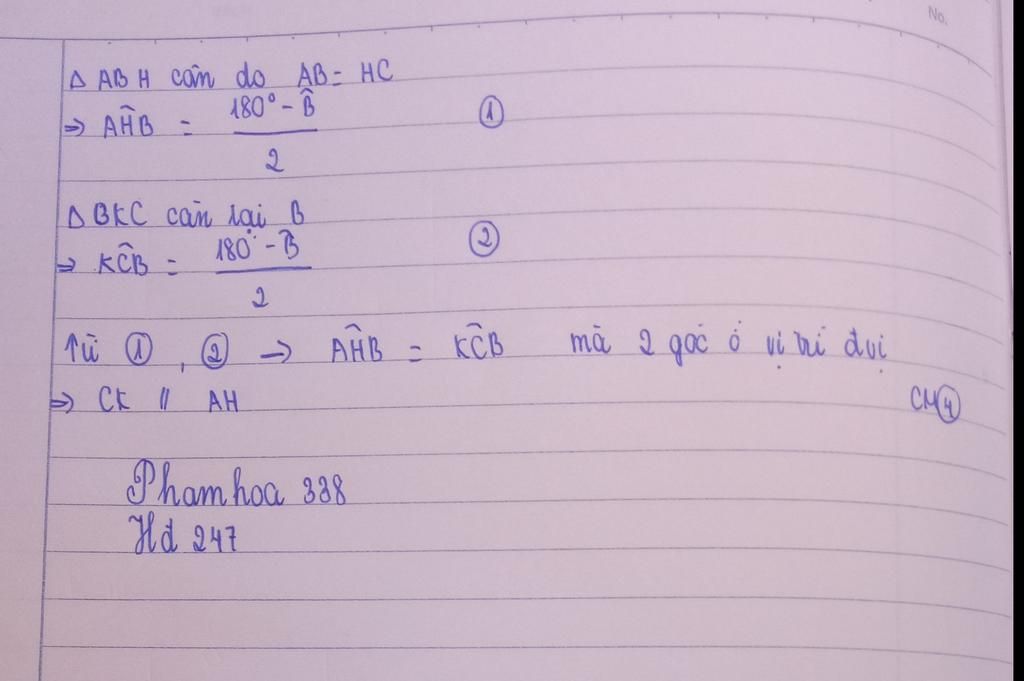 No.
Δ ABH cân do AB = HC
⇒ AĤB = (180° - B̂)/2 ①
Δ BKC cân tại B
⇒ KĈB = (180° - B̂)/2 ②
Từ ①, ② → AĤB = KĈB mà 2 góc ở vị trí đvị
⇒ CK // AH CM④
Phamhoa 338
Hđ 247